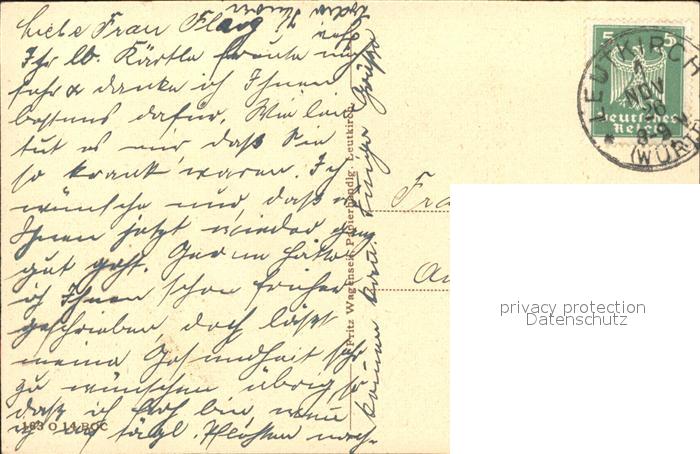 Liebe Frau Flaig!
Ihr lb. Kärtle freute mich
sehr & danke ich Ihnen
bestens dafür. Wie leid
tut es mir daß Sie
so krank waren. Ich
wünsche nur, daß es
Ihnen jetzt wieder ganz
gut geht. Gerne hätte
ich Ihnen schon früher
geschrieben, doch lässt
meine Gesundheit sehr
zu wünschen übrig so
daß ich froh bin, wenn
ich tägl. Pflichten nach-
kommen kann. Grüße
Fritz Wagenseil, Papierhandlg. Leutkirch
193 O 14 BOC
5 5
Deutsches
Reich
LEUTKIRCH
1
NOV
26
8-9 V
(WÜRTT
Fra
privacy protection
Datenschutz